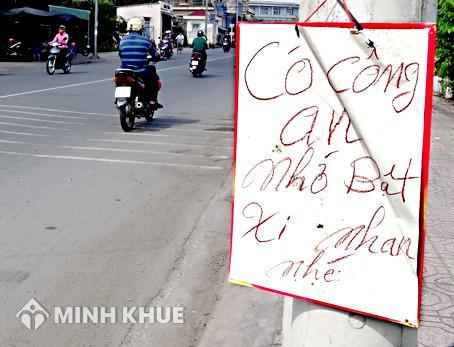 Có công
an
nhớ Bật
xi nhan
nhé
MINH KHUÊ